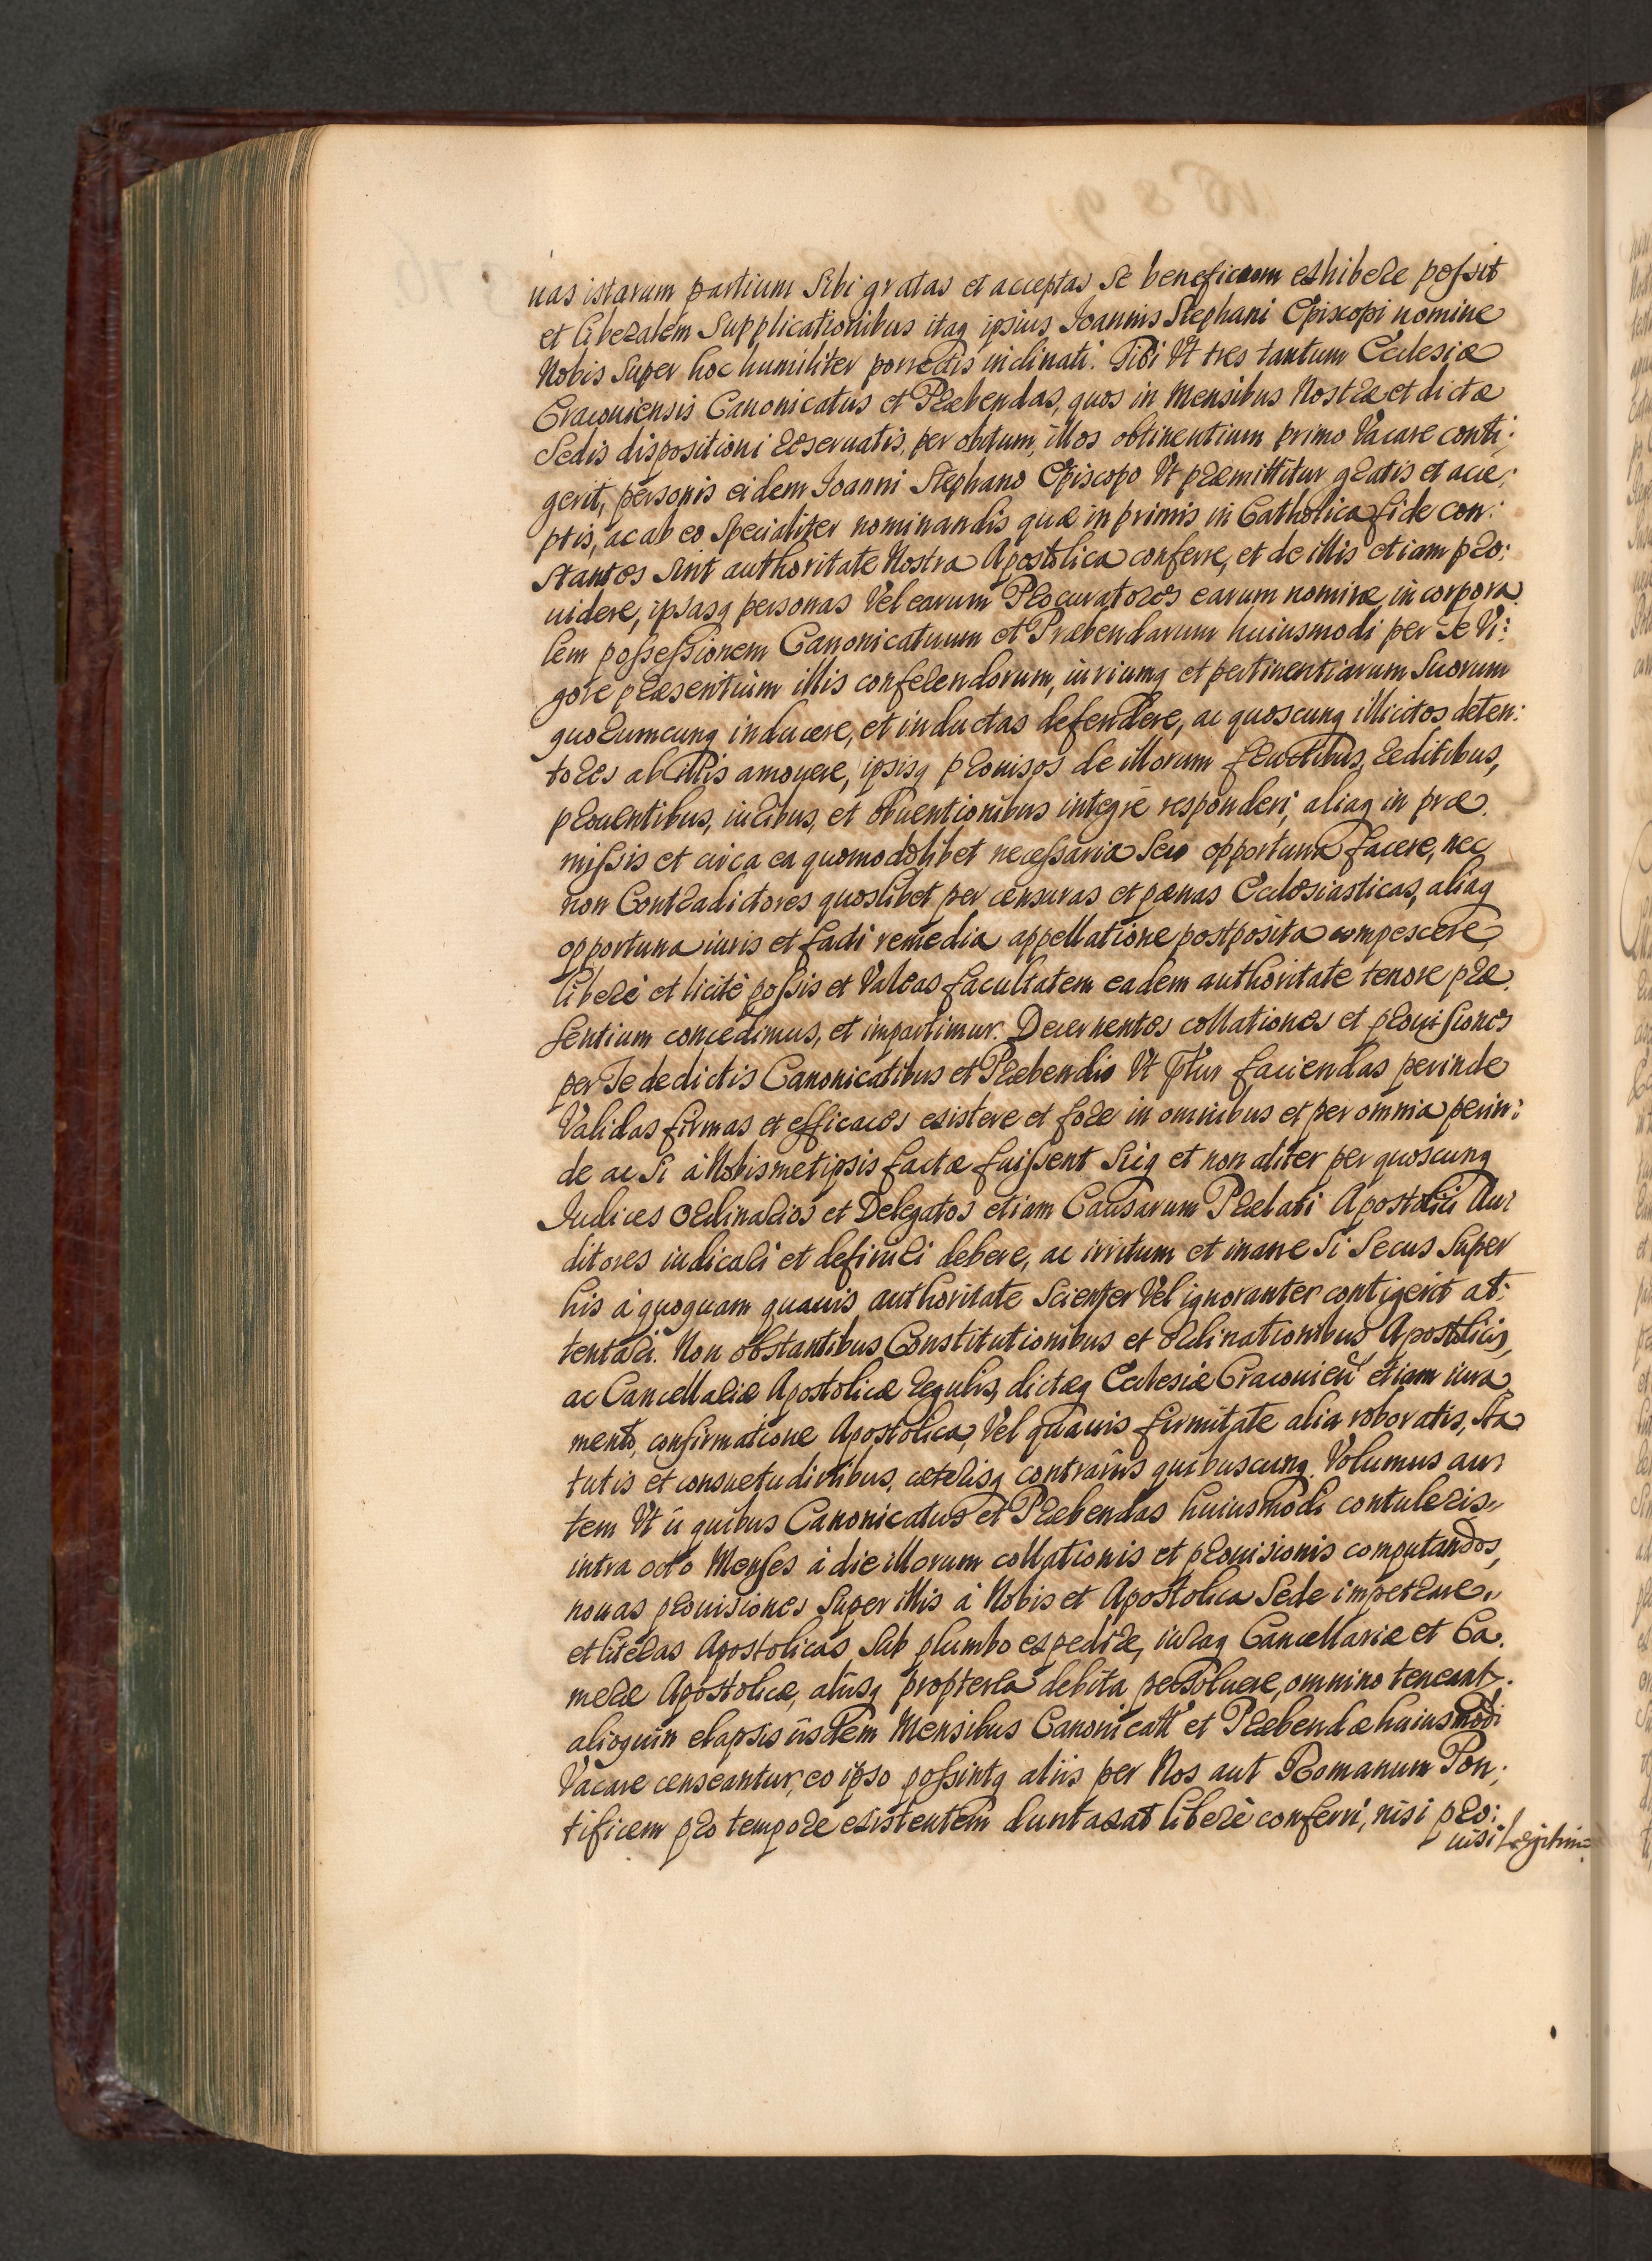 uas istarum partium sibi gratas et acceptas se beneficum exhibere possit
et liberalem Supplicationibus itaq ipsius Joannis Stephani Episcopi nomine
Nobis super hoc humiliter porrectis inclinati. Tibi Vt tres tantum Ecclesiæ
Cracouiensis Canonicatus et Præbendas, quos in Mensibus Nostræ et dictæ
Sedis dispositioni reseruatis, per obitum, illos obtinentium primo Vacare conti:
gerit, personis eidem Joanni Stephano Episcopo Vt præmittitur gratis et acce:
ptis, ac ab eo specialiter nominandis quæ in primis in Catholica fide con:
stantes sint authoritate Nostra Apostolica conferre, et de illis etiam pro:
uidere, ipsasq personas Vel earum Procuratores earum nomine, in corpora:
lem possessionem Canonicatuum et Præbendarum huiusmodi per Te Vi:
gore præsentium illis conferendorum, iuriumq et pertinentiarum suorum
quorumcunq inducere, et inductas defendere, ac quoscunq illicitos deten:
tores ab illis amouere, ipsisq prouisos de illorum fructibus, reditibus,
prouentibus, iuribus, et obuentionibus integrè responderi, aliaq in præ:
missis et circa ea quomodolibet necessaria seu opportuna facere, nec
non Contradictores quoslibet per censuras et pœnas Ecclesiasticas, aliaq
opportuna iuris et facti remedia appellatione postposita compescere
liberè et licitè possis et Valeas facultatem eadem authoritate tenore præ:
sentium concedimus, et impartimur. Decernentes collationes et prouisiones
per Te de dictis Canonicatibus et Præbendis Vt pr̄tur faciendas perinde
Validas firmas et efficaces existere et fore in omnibus et per omnia perin:
de ac si à Nobismetipsis factæ fuissent sicq et non aliter per quoscunq
Iudices Ordinarios et Delegatos etiam Causarum Palatii Apostolici Au:
ditores iudicari et definiri debere, ac irritum et inane si secus super
his à quoquam quauis authoritate scienter Vel ignoranter contigerit at:
tentari. Non obstantibus Constitutionibus et ordinationibus Apostolicis,
ac Cancellariæ Apostolicæ regulis, dictæq Ecclesiæ Cracouien̄ etiam iura:
mento, confirmatione Apostolica, Vel quauis firmitate alia roboratis, sta:
tutis et consuetudinibus, cæterisq contrariis quibuscunq. Volumus au:
tem Vt ii quibus Canonicatus et Præbendas huiusmodi contuleris,
intra octo Menses à die illorum collationis et prouisionis computandos,
nouas prouisiones super illis à Nobis et Apostolica Sede impetrare,
et literas Apostolicas sub plumbo expedire, iuraq Cancellariæ et Ca:
meræ Apostolicæ, aliisq propterea debita persoluere, omnino teneant,
alioquin elapsis iisdem Mensibus Canonicatt et Præbendæ huiusmodi
Vacare censeantur, eo ipso possintq aliis per Nos aut Romanum Pon:
tificem pro tempore existentem duntaxat liberè conferri, nisi pro:
uisi legitim: